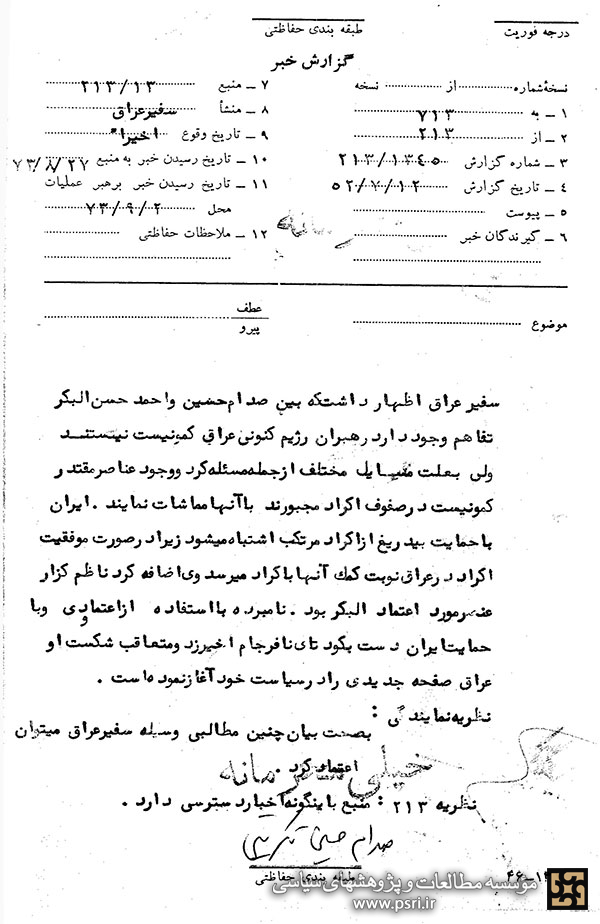 درجه فوریت
طبقه بندی حفاظتی
گزارش خبر
نسخهٔ شماره ........ از ........ نسخه
۱ ـ به ۷۱۳
۲ ـ از ۲۱۳
۳ ـ شماره گزارش ۲۱۳/۱۳۴۵
۴ ـ تاریخ گزارش ۵۲/۷/۱۲
۵ ـ پیوست
۶ ـ گیرندگان خبر
۷ ـ منبع ۲۱۳/۱۳
۸ ـ منشأ سفیر عراق
۹ ـ تاریخ وقوع اخیراً
۱۰ ـ تاریخ رسیدن خبر به منبع ۷۳/۸/۲۷
۱۱ ـ تاریخ رسیدن خبر برهبر عملیات
محل ۷۳/۹/۲
۱۲ ـ ملاحظات حفاظتی
موضوع
عطف
پیرو
سفیر عراق اظهار داشتکه بین صدام حسین و احمد حسن البکر
تفاهم وجود دارد رهبران رژیم کنونی عراق کمونیست نیستند
ولی بعلت مسایل مختلف از جمله مسئله کرد و وجود عناصر مقتدر
کمونیست در صفوف اکراد مجبورند با آنها مماشات نمایند . ایران
با حمایت بیدریغ از اکراد مرتکب اشتباه میشود زیرا در صورت موفقیت
اکراد در عراق نوبت کمک آنها با کراد میرسد وی اضافه کرد ناظم کزار
عنصر مورد اعتماد البکر بود . نامبرده با استفاده از اعتماد وی و با
حمایت ایران دست بکودتای نافرجام اخیر زد و متعاقب شکست او
عراق صفحه جدیدی را در سیاست خود آغاز نموده است .
نظریه نمایندگی :
بصحت بیان چنین مطالبی وسیله سفیر عراق میتوان
اعتماد کرد .
خیلی محرمانه
نظریه ۲۱۳ : منبع باینگونه اخبار دسترسی دارد .
صدام حسین تکریتی
طبقه بندی حفاظتی
موسسه مطالعات و پژوهشهای سیاسی
www.psri.ir